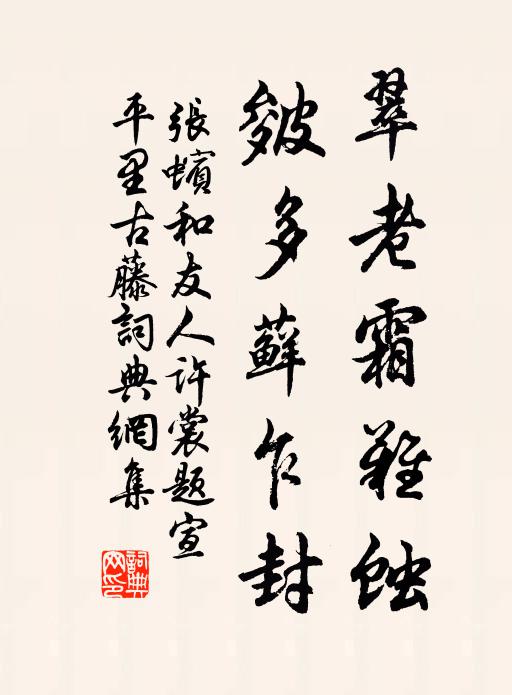 翠老霜難蝕
皴多蘚乍封
張蠙和友人許裳題宣
平里古藤詞典網集
詞典
网印